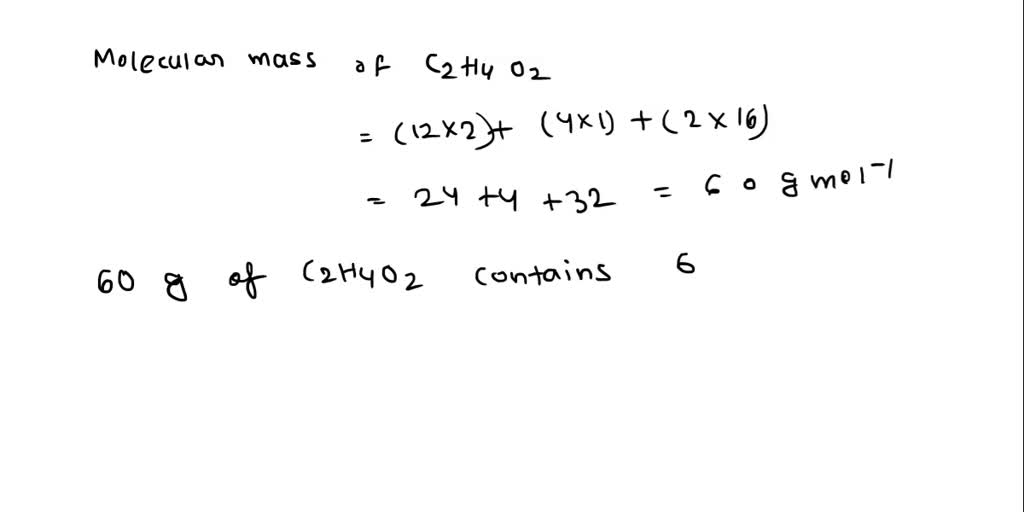 Molecular mass of C2H4O2
= (12×2)+ (4×1) + (2×16)
= 24 +4 +32 = 60 g mol-1
60 g of C2H4O2 contains 6